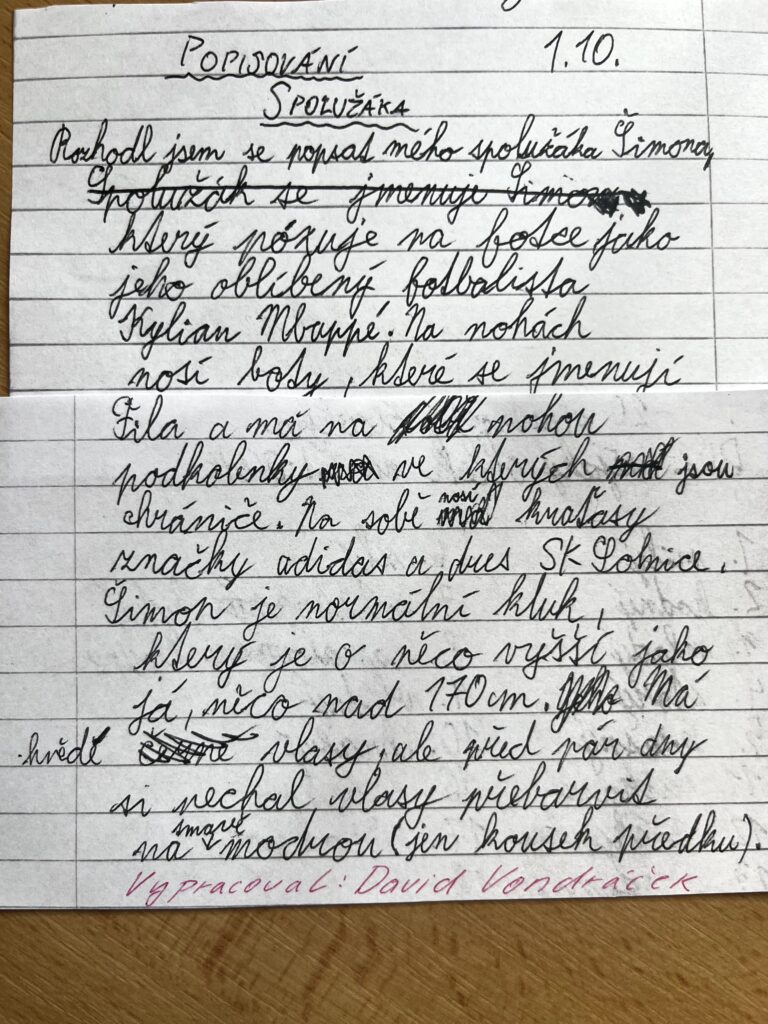 POPISOVÁNÍ 1.10.
SPOLUŽÁKA
Rozhodl jsem se popsat mého spolužáka Šimona,
Spolužák se jmenuje Šimon
který pózuje na fotce jako
jeho oblíbený fotbalista
Kylian Mbappé. Na nohách
nosí boty, které se jmenují
Fila a má na nohou
podkolenky ve kterých jsou
chrániče. Na sobě nosí kraťasy
značky adidas a dres SK Solnice.
Šimon je normální kluk,
který je o něco vyšší jako
já, něco nad 170cm. Má
hnědé černé vlasy, ale před pár dny
si nechal vlasy přebarvit
na tmavě modrou (jen kousek předku).
Vypracoval: David Vondráček